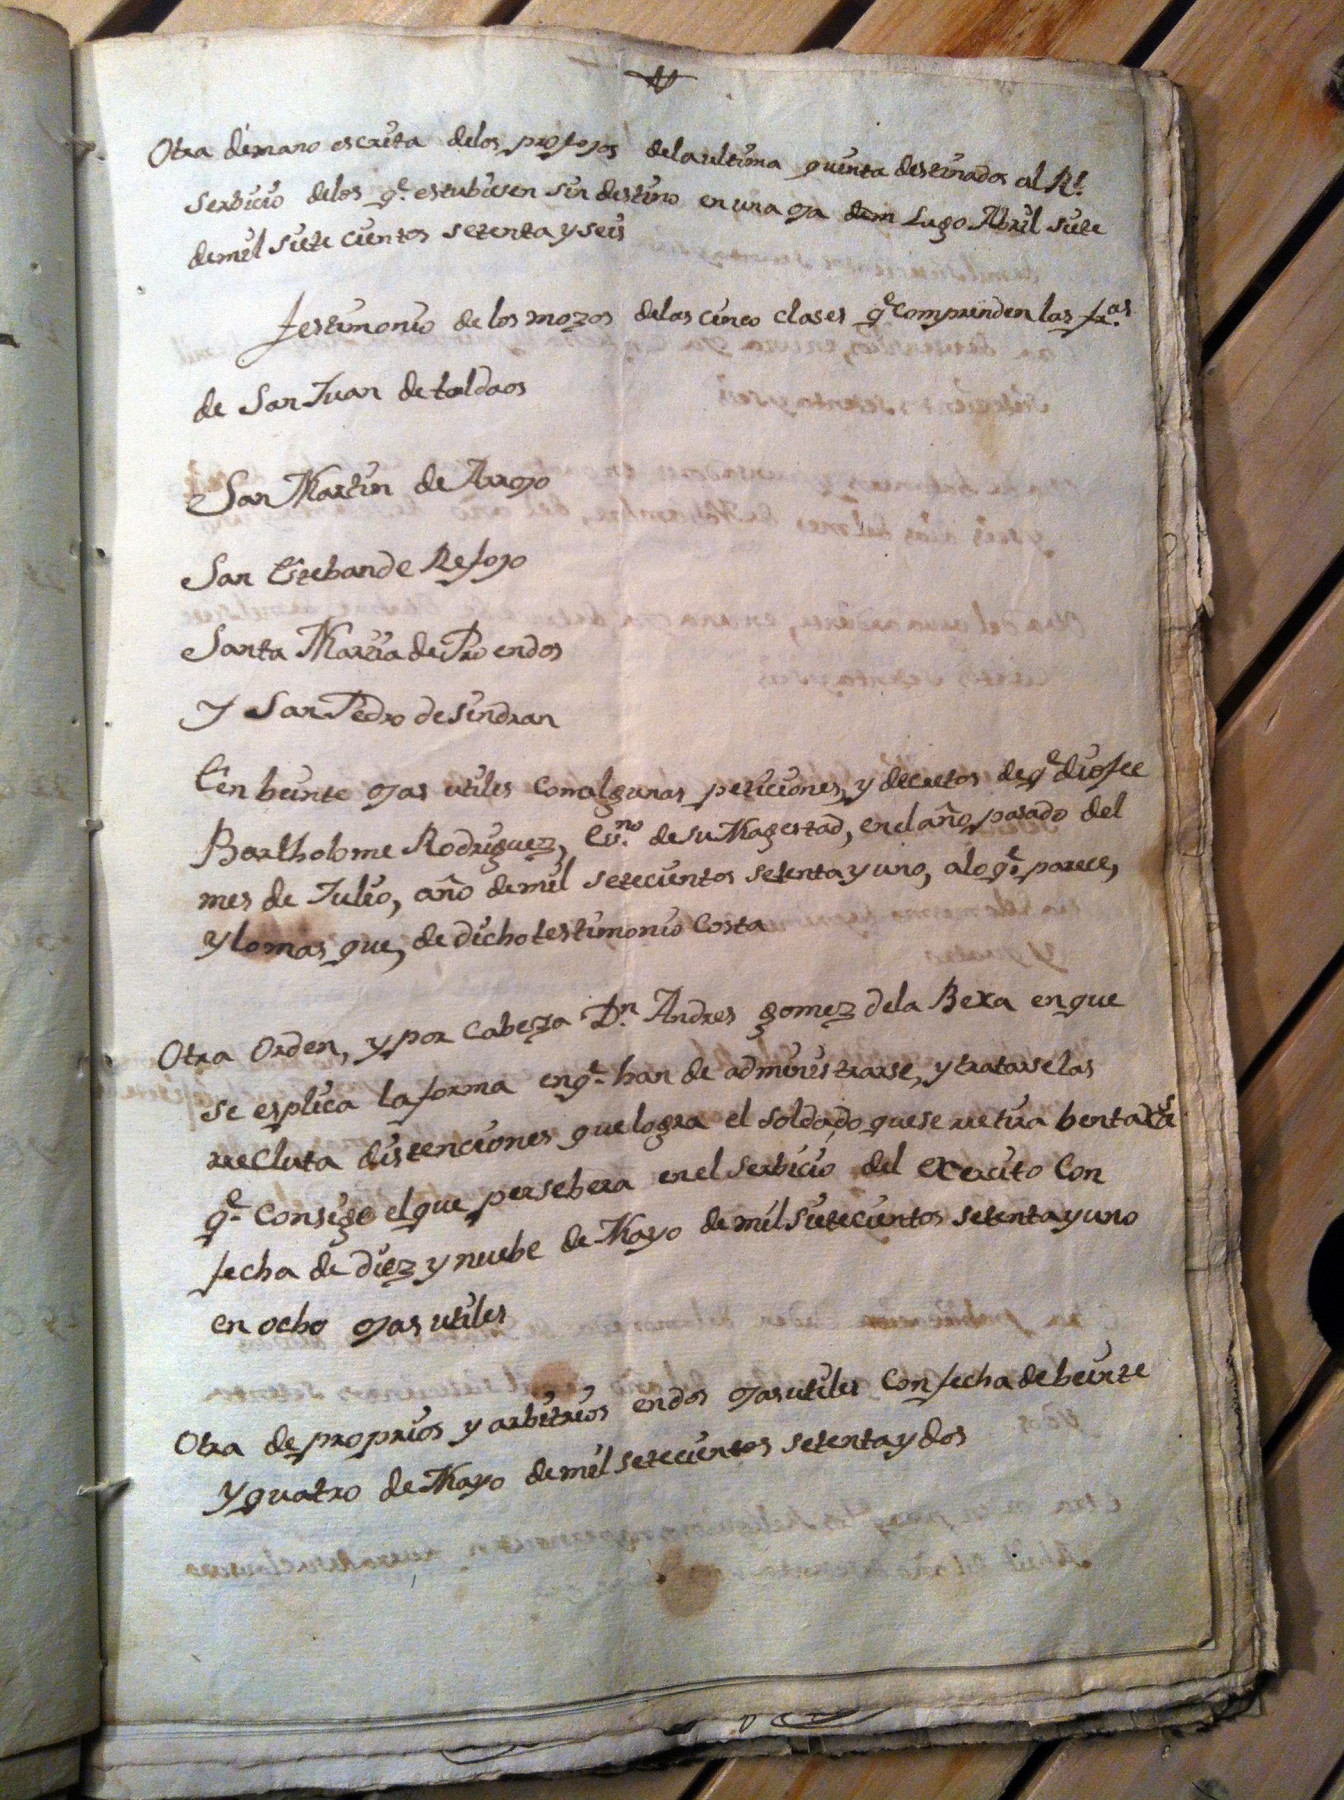 Otra demano escrita delos profojos delaultima quinta destinados al Rl.
Serbicio delos q.e estubiesen sin destino en una oja dem Lugo Abril siete
demil siete cientos setenta y seis
Testimonio de los mozos delas cinco clases q.e comprenden las fr.as
de San Juan de toldaos
San Martin de Arrojo
San Esteban de Refojo
Santa Maria de Proendos
Y San Pedro de Sindran
En beinte ojas utiles con algunas peticiones, y decretos de q.e dio fee
Bartholome Rodriguez, Es.no de su Magestad, en el año pasado del
mes de Julio, año demil setecientos setenta y uno, alo q.e parece,
y lo mas que, de dicho testimonio Costa
Otra Orden, y por Cabeza D.n Andres gomez dela Bexa en que
se esplica la forma en q.e han de administrarse, y tratarse las
rrecluta distenciones que logra el soldado que se rretira bentaxas
q.e Consige el que persebera en el serbicio del exercito Con
fecha de diez y nuebe de Mayo de mil sietecientos setenta y uno
en ocho ojas utiles
Otra de proprios y arbitrios en dos ojas utiles Con fecha de beinte
y quatro de Mayo demil setecientos setenta y dos